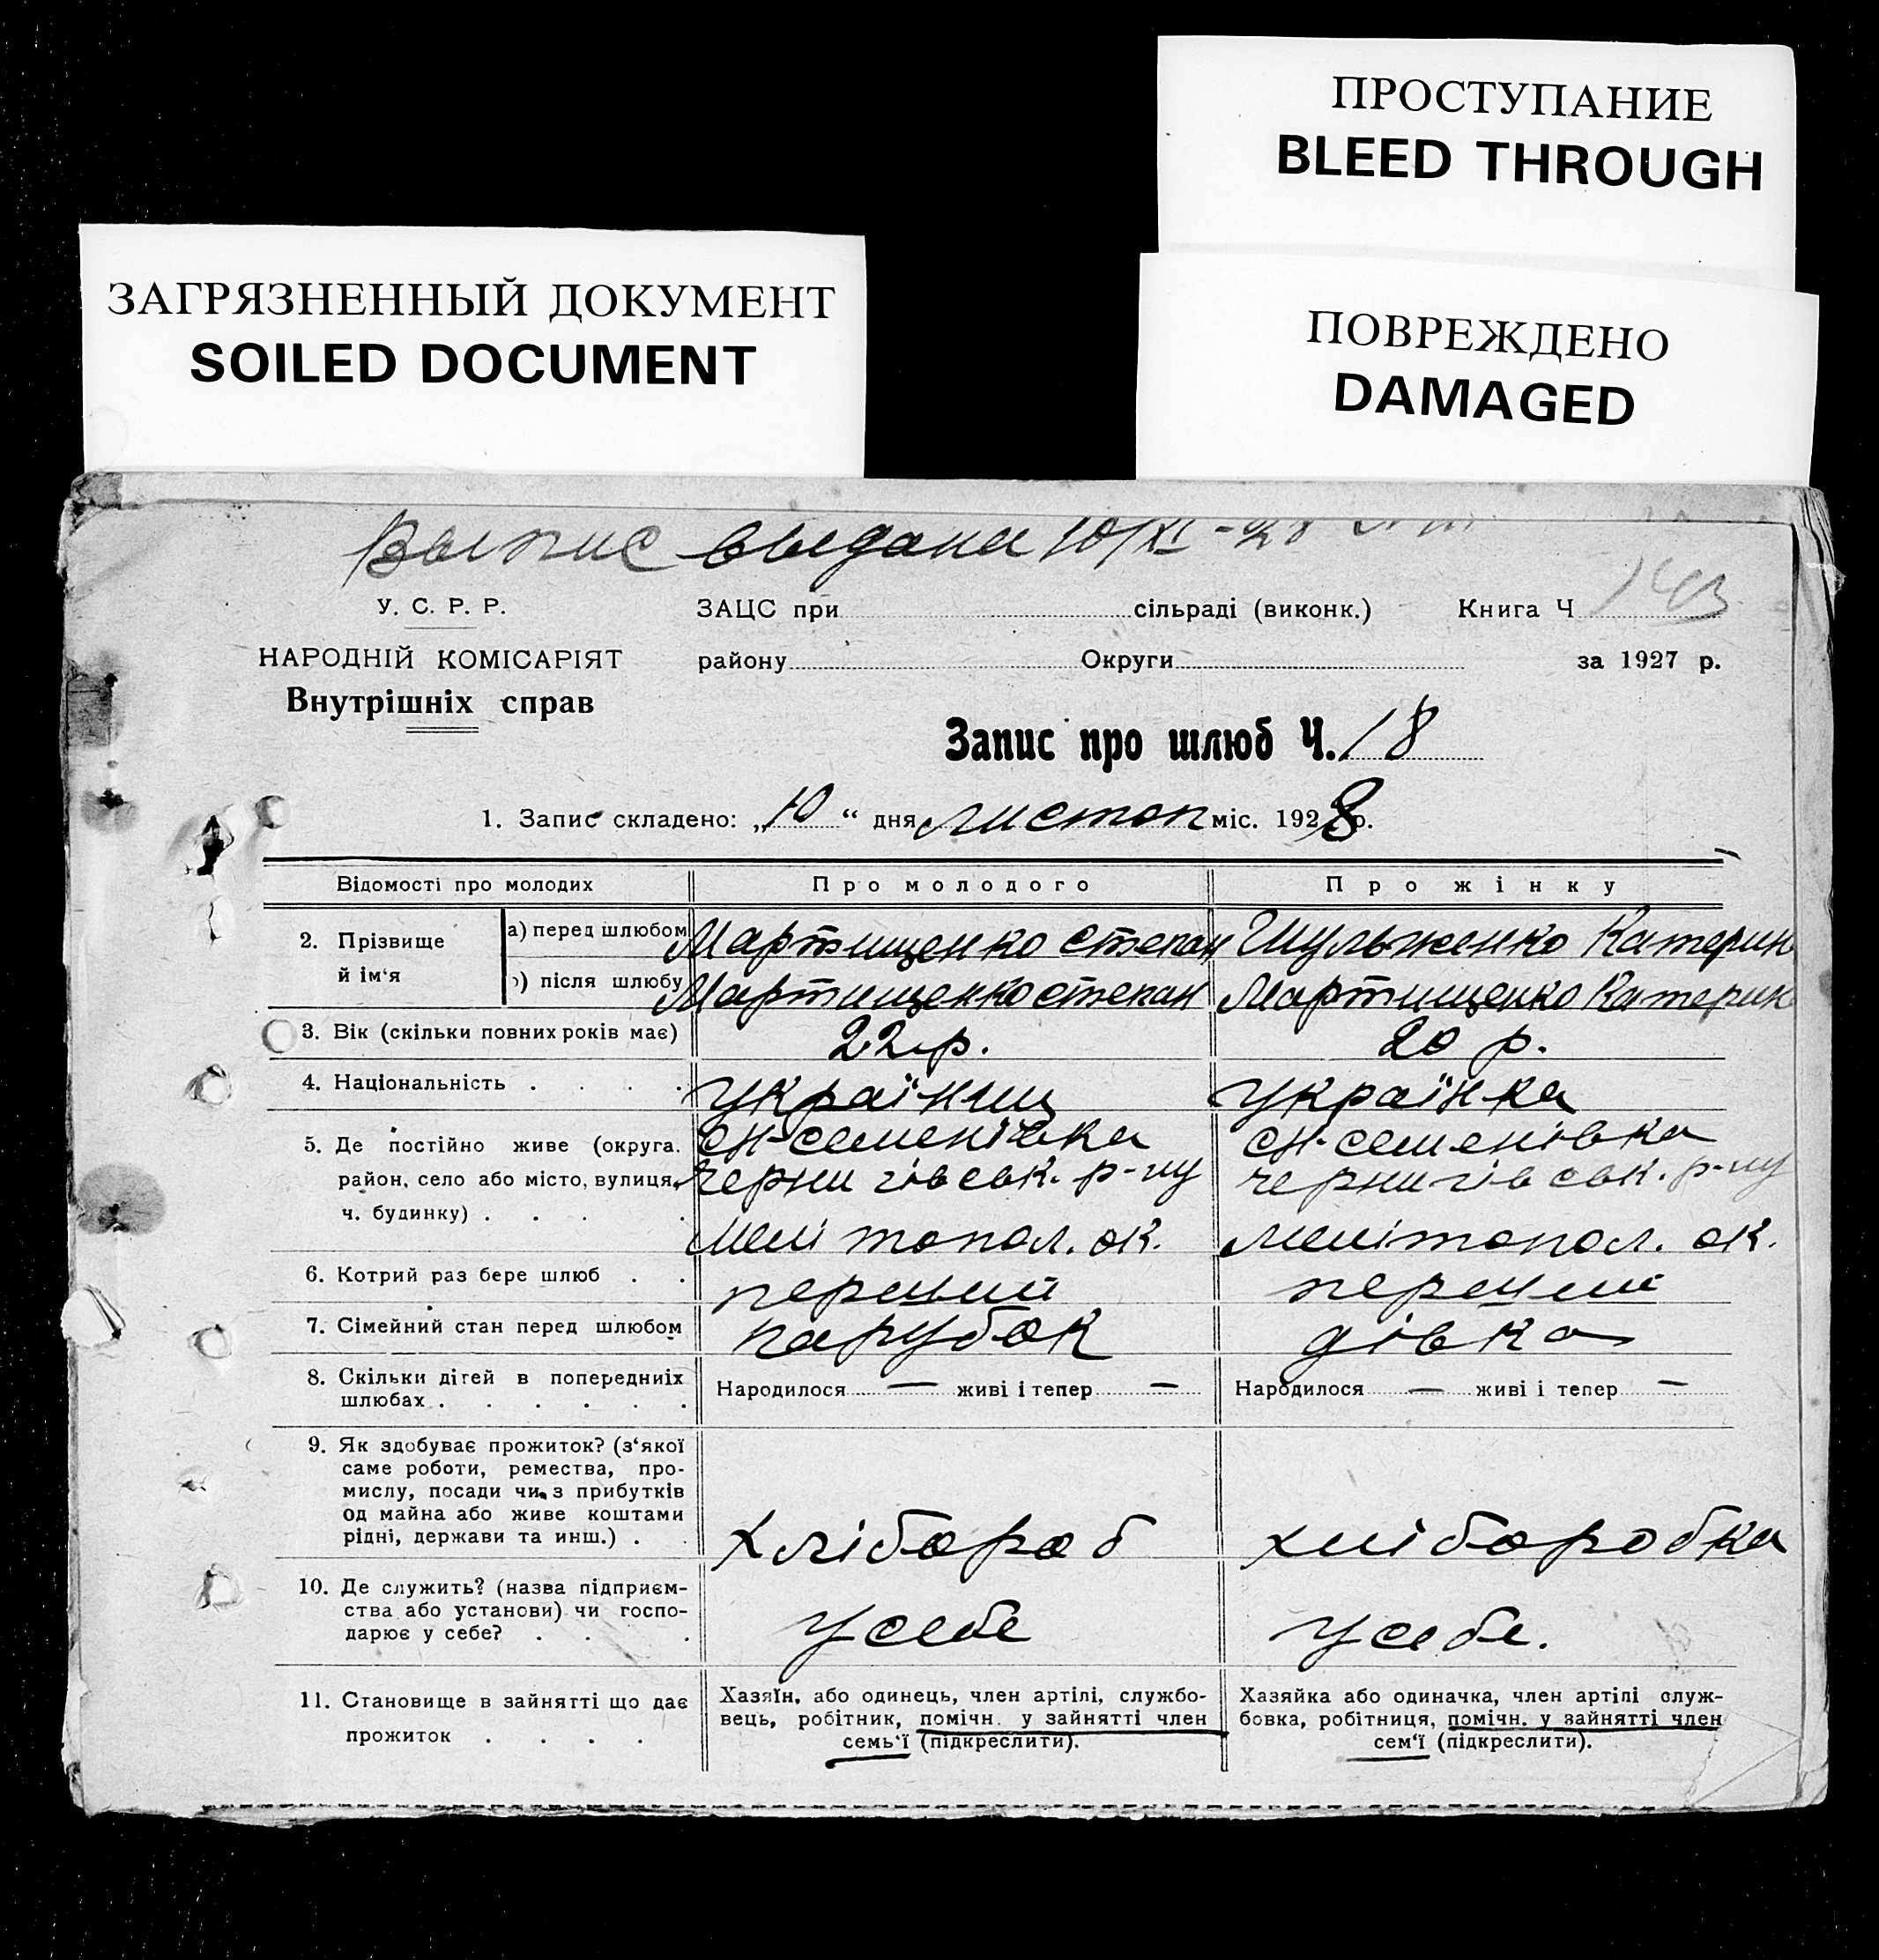 ПРОСТУПАНИЕ
BLEED THROUGH
ЗАГРЯЗНЕННЫЙ ДОКУМЕНТ
SOILED DOCUMENT
ПОВРЕЖДЕНО
DAMAGED
Выпис выдана 10/XI-28
У. С. Р. Р.
НАРОДНІЙ КОМІСАРІЯТ
Внутрішніх справ
ЗАЦС при сільраді (виконк.) Книга Ч 143
району Округи за 1927 р.
Запис про шлюб Ч. 18
1. Запис складено: „10“ дня листоп міс. 1928 р.
Відомості про молодих Про молодого Про жінку
2. Прізвище й ім‘я
а) перед шлюбом Мартищенко Степан Шульженко Катерин
) після шлюбу Мартищенко Степан Мартищенко Катерин
3. Вік (скільки повних років має) 22 р. 20 р.
4. Національність . . . . українец українка
5. Де постійно живе (округа.
район, село або місто, вулиця,
ч. будинку) . . . .
сн-семенівка
чернигівськ. р-ну
мелітопол. ок.
сн-семенівка
чернигівськ. р-ну
мелітопол. ок.
6. Котрий раз бере шлюб . . перший перший
7. Сімейний стан перед шлюбом парубок дівка
8. Скільки дітей в попередниіх
шлюбах . . . . . .
Народилося — живі і тепер —
Народилося — живі і тепер —
9. Як здобуває прожиток? (з‘якої
саме роботи, ремества, про-
мислу, посади чи з прибутків
од майна або живе коштами
рідні, держави та инш.) . .
хлібороб хліборобка
10. Де служить? (назва підприєм-
ства або установи) чи госпо-
дарює у себе? . . .
у себе у себе.
11. Становище в зайнятті що дає
прожиток . . . .
Хазяїн, або одинець, член артілі, службо-
вець, робітник, помічн. у зайнятті член
семь‘ї (підкреслити).
Хазяйка або одиначка, член артілі служ-
бовка, робітниця, помічн. у зайнятті член
сем‘ї (підкреслити).